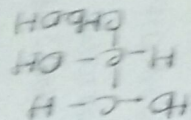 HO - C - H
H - C - OH
CH2OH